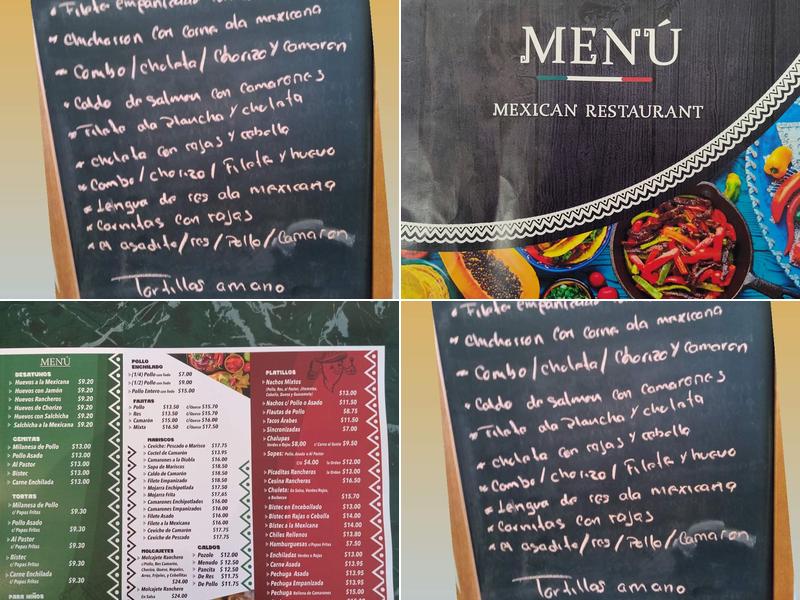 Filete empanizado
* chicharron con carne ala mexicana
* Combo/chuleta/Chorizo y camaron
* Caldo de salmon con camarones
* Filete ala plancha y chuleta
* chuleta con rajas y cebolla
* Combo/chorizo/Filete y huevo
* Lengua de res ala mexicana
* Carnitas con rajas
* asadito/res/Pollo/Camaron
Tortillas amano
MENÚ
MEXICAN RESTAURANT
MENÚ
DESAYUNOS
Huevos a la Mexicana $9.20
Huevos con Jamón $9.20
Huevos Rancheros $9.20
Huevos de Chorizo $9.20
Huevos con Salchicha $9.20
Salchicha a la Mexicana $9.20
CEMITAS
Milanesa de Pollo $13.00
Pollo Asado $13.00
Al Pastor $13.00
Bistec $13.00
Carne Enchilada $13.00
TORTAS
Milanesa de Pollo
c/Papas Fritas $9.30
Pollo Asado
c/Papas Fritas $9.30
Al Pastor
c/Papas Fritas $9.30
Bistec
c/Papas Fritas $9.30
Carne Enchilada
c/Papas Fritas $9.30
PARA NIÑOS
POLLO ENCHILADO
(1/4) Pollo con todo $7.00
(1/2) Pollo con todo $9.00
Pollo Entero con todo $15.00
FAJITAS
Pollo $13.50 c/Queso $15.70
Res $13.50 c/Queso $15.70
Camarón $15.00 c/Queso $18.00
Mixta $16.50 c/Queso $17.50
MARISCOS
Ceviche: Pescado o Marisco $17.75
Coctel de Camarón $13.95
Camarones a la Diabla $16.00
Sopa de Mariscos $18.50
Caldo de Camarón $18.50
Filete Empanizado $18.50
Mojarra Enchipotlada $17.50
Mojarra Frita $17.65
Camarones Enchipotlados $16.00
Camarones Empanizados $16.00
Filete Asado $16.00
Filete a la Mexicana $16.00
Ceviche de Camarón $17.75
Ceviche de Pescado $17.75
MOLCAJETES
Molcajete Ranchero
c/Pollo, Res Camarón,
Chorizo, Queso, Nopales,
Arroz, Frijoles, y Cebollitas
$24.00
Molcajete Ranchero
En Salsa $24.00
CALDOS
Pozole $12.00
Menudo $12.50
Pancita $12.50
De Res $11.75
De Pollo $11.75
PLATILLOS
Nachos Mixtos
(Pollo, Res, al Pastor, Jitomates,
Cebolla, Queso y Guacamole) $13.00
Nachos c/ Pollo o Asado $11.50
Flautas de Pollo $8.75
Tacos Árabes $11.50
Sincronizadas $7.00
Chalupas
Verdes o Rojas $8.00 c/ Carne al Gusto $9.50
Sopes: Pollo, Asada o Al Pastor
C/U $4.00 La Orden $12.00
Picaditas Rancheros la Orden $13.00
Cecina Rancheros $16.50
Chuleta: En Salsa, Verdes Rojas,
o Barbacoa $15.70
Bistec en Encebollado $13.00
Bistec en Rajas o Cebolla $14.00
Bistec a la Mexicana $14.00
Chiles Rellenos $13.80
Hamburguesas c/Papas Fritas $7.50
Enchiladas Verdes o Rojas $13.00
Carne Asada $13.95
Pechuga Asada $13.95
Pechuga Empanizada $13.95
Pechuga Rellena de Camarones $15.00
Filete empanizado
* chicharron con carne ala mexicana
* Combo/chuleta/Chorizo y camaron
* Caldo de salmon con camarones
* Filete ala plancha y chuleta
* chuleta con rajas y cebolla
* Combo/chorizo/Filete y huevo
* Lengua de res ala mexicana
* Carnitas con rajas
* asadito/res/Pollo/Camaron
Tortillas amano